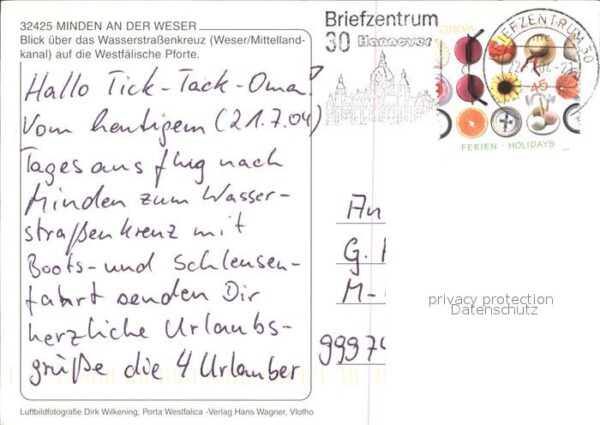 32425 MINDEN AN DER WESER
Blick über das Wasserstraßenkreuz (Weser/Mittelland-
kanal) auf die Westfälische Pforte.
Hallo Tick-Tack-Oma!
Vom heutigem (21.7.04)
Tagesausflug nach
Minden zum Wasser-
straßenkreuz mit
Boots- und Schleusen-
fahrt senden Dir
herzliche Urlaubs-
grüße die 4 Urlauber
Luftbildfotografie Dirk Wilkening, Porta Westfalica -Verlag Hans Wagner, Vlotho
Briefzentrum
30 Hannover
BRIEFZENTRUM 30
EUROPA
45
FERIEN · HOLIDAYS
An
G.
M-
9997
privacy protection
Datenschutz